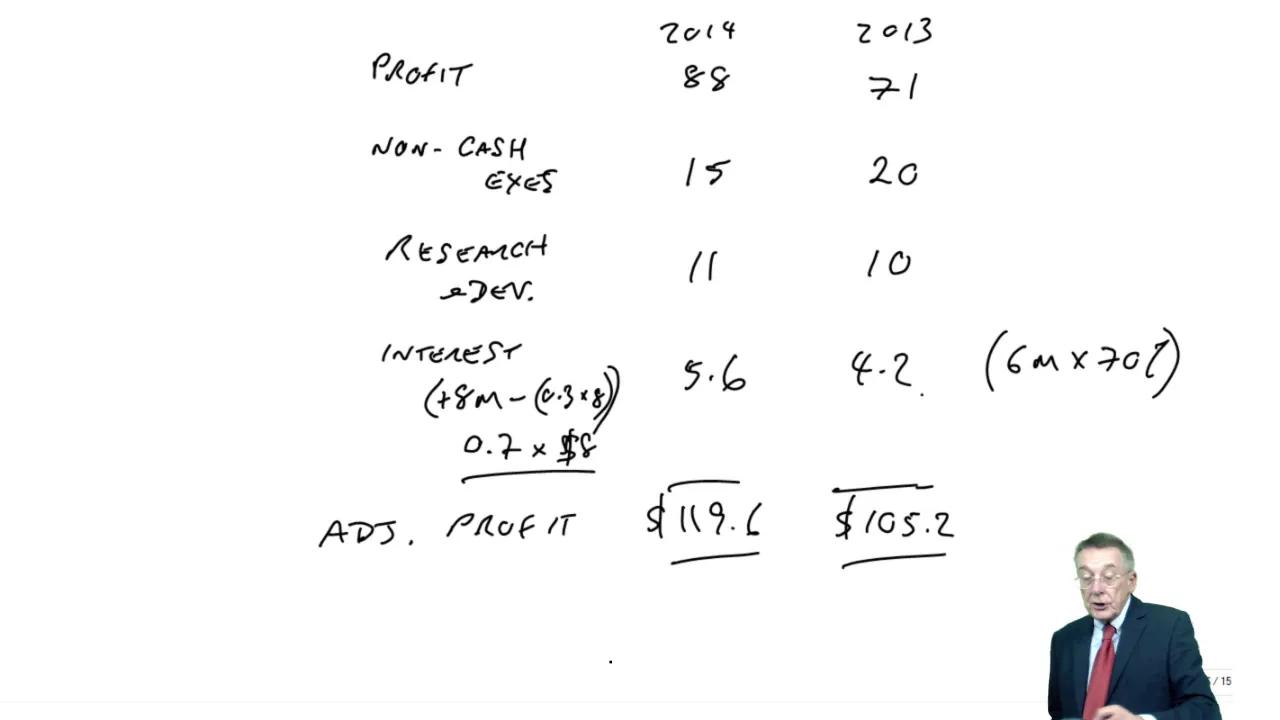 2014 2013
PROFIT 88 71
NON-CASH
EXES 15 20
RESEARCH
& DEV. 11 10
INTEREST 5.6 4.2 (6m x 70%)
(+8m - (0.3 x 8))
0.7 x $8
ADJ. PROFIT $119.6 $105.2
/ 15